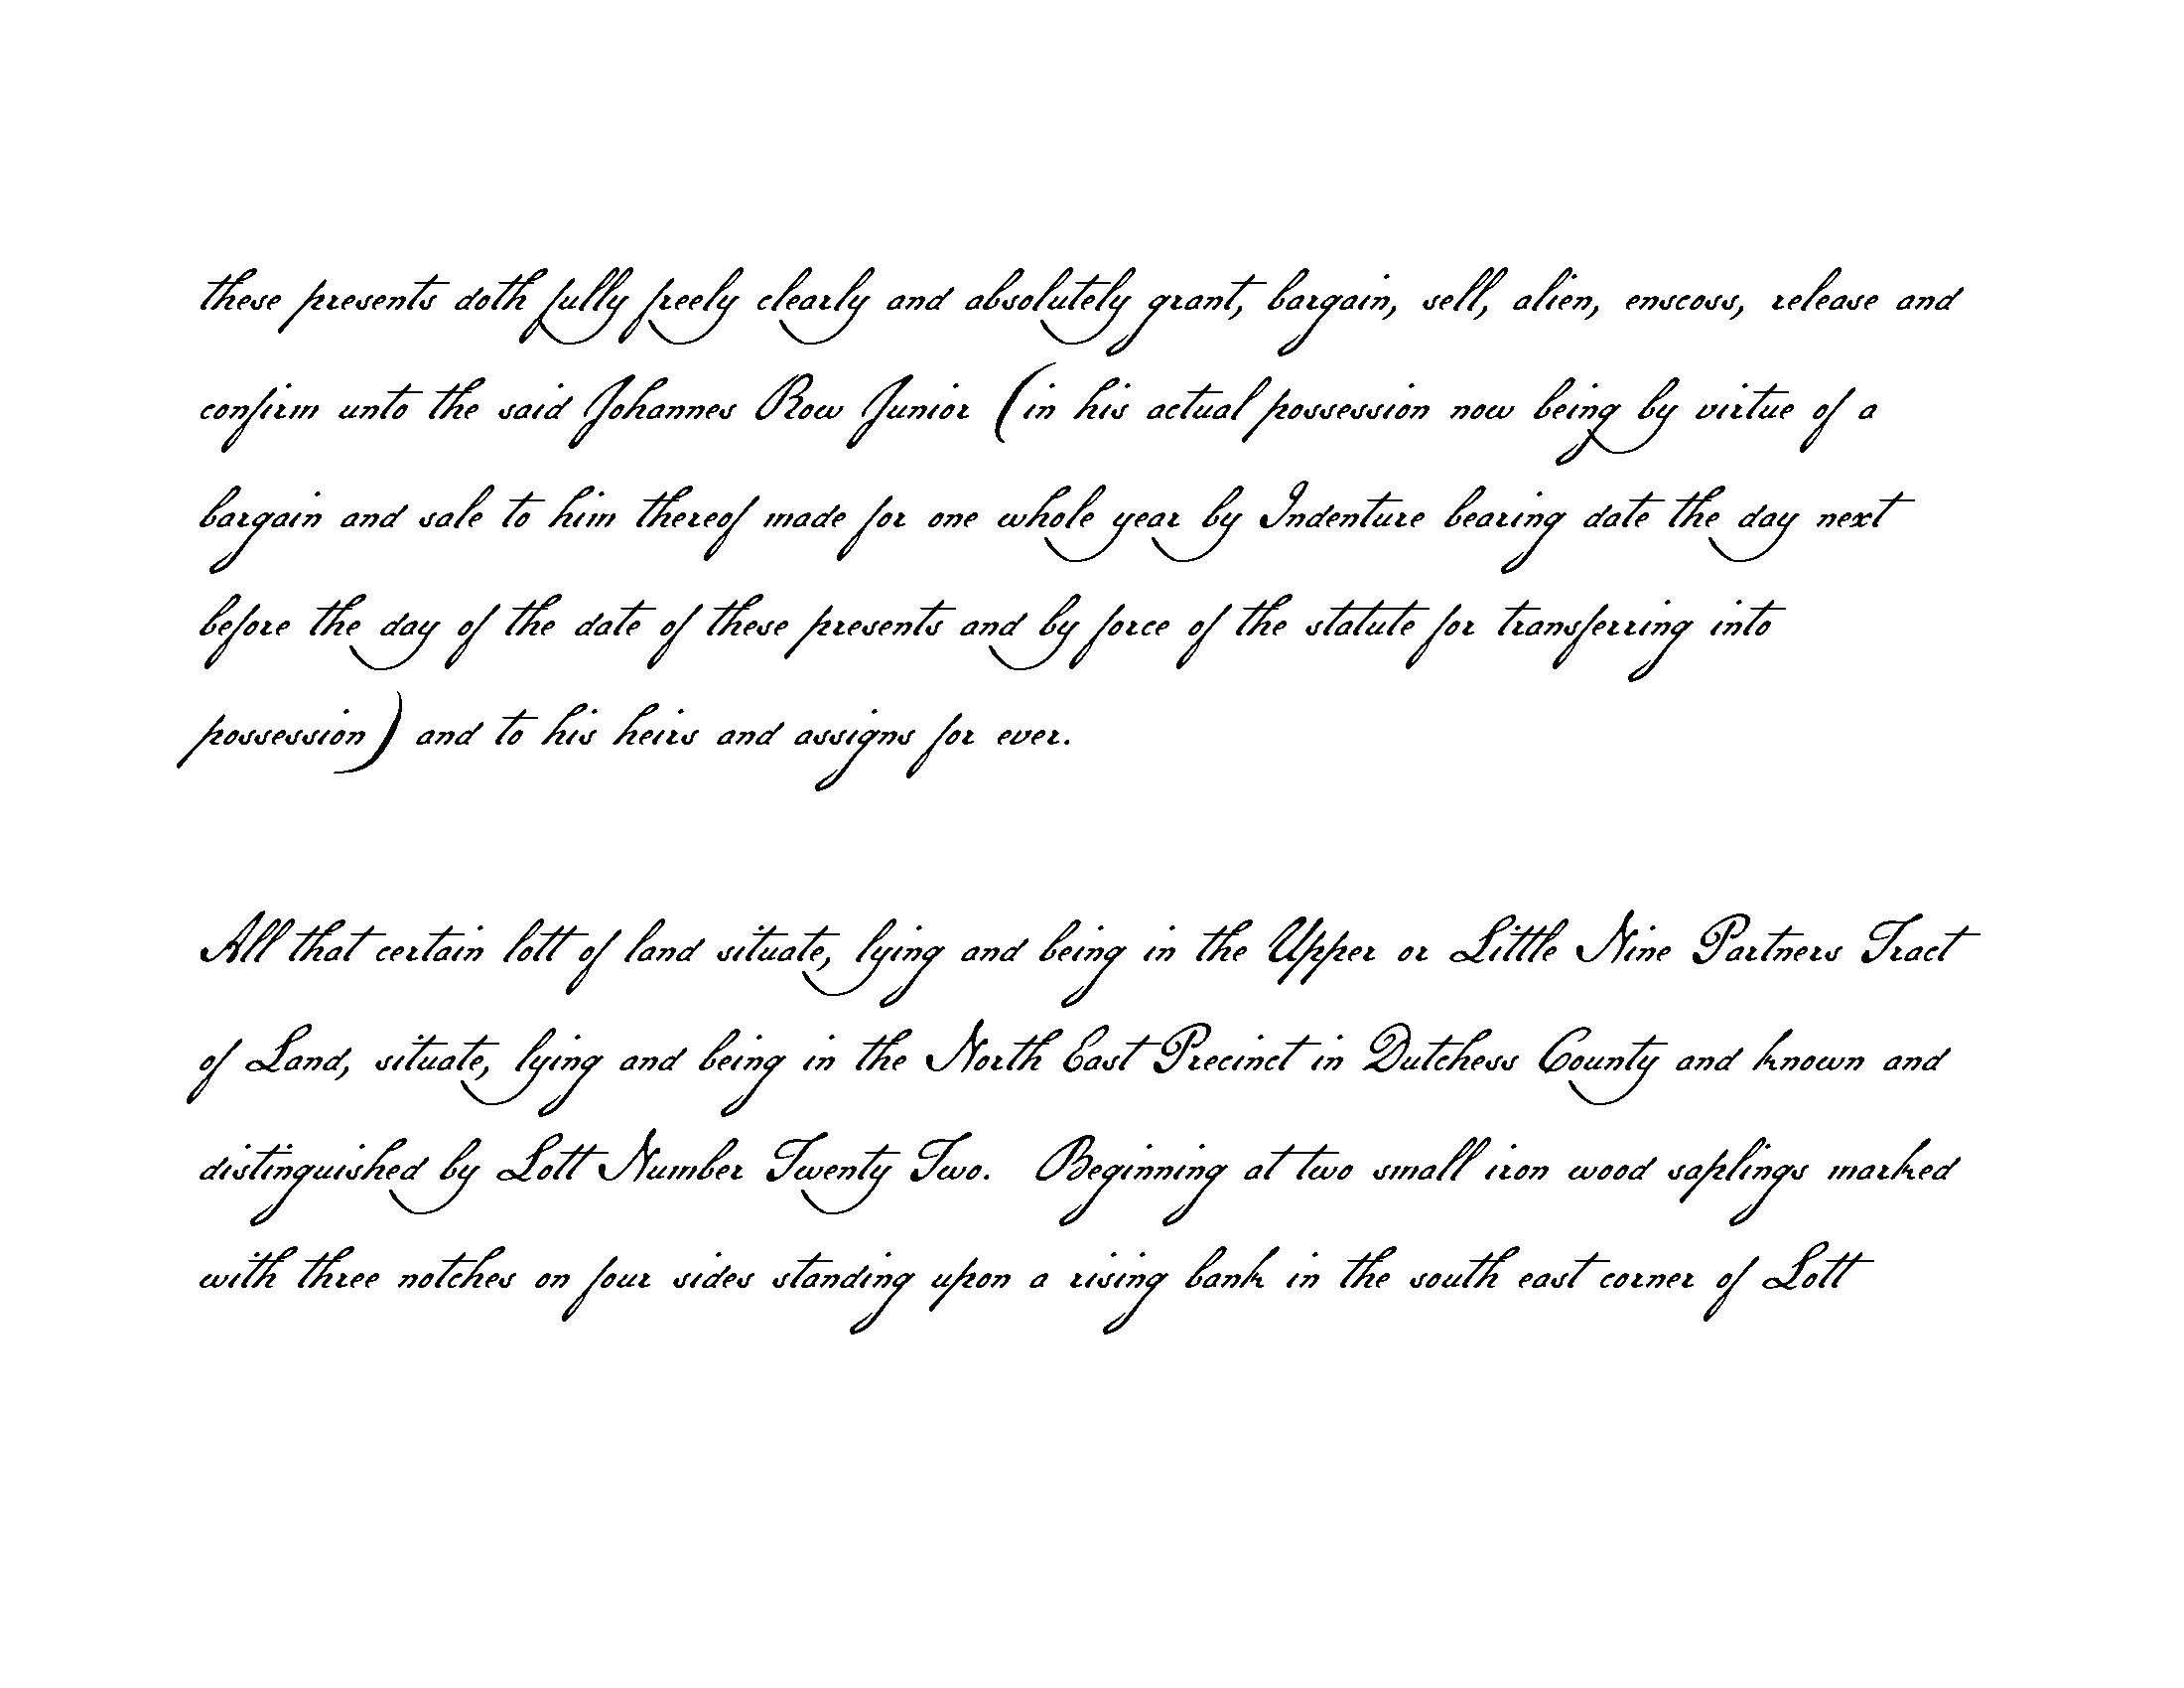 these presents doth fully freely clearly and absolutely grant, bargain, sell, alien, enscoss, release and
confirm unto the said Johannes Row Junior (in his actual possession now being by virtue of a
bargain and sale to him thereof made for one whole year by Indenture bearing date the day next
before the day of the date of these presents and by force of the statute for transferring into
possession) and to his heirs and assigns for ever.
All that certain lott of land situate, lying and being in the Upper or Little Nine Partners Tract
of Land, situate, lying and being in the North East Precinct in Dutchess County and known and
distinguished by Lott Number Twenty Two. Beginning at two small iron wood saplings marked
with three notches on four sides standing upon a rising bank in the south east corner of Lott